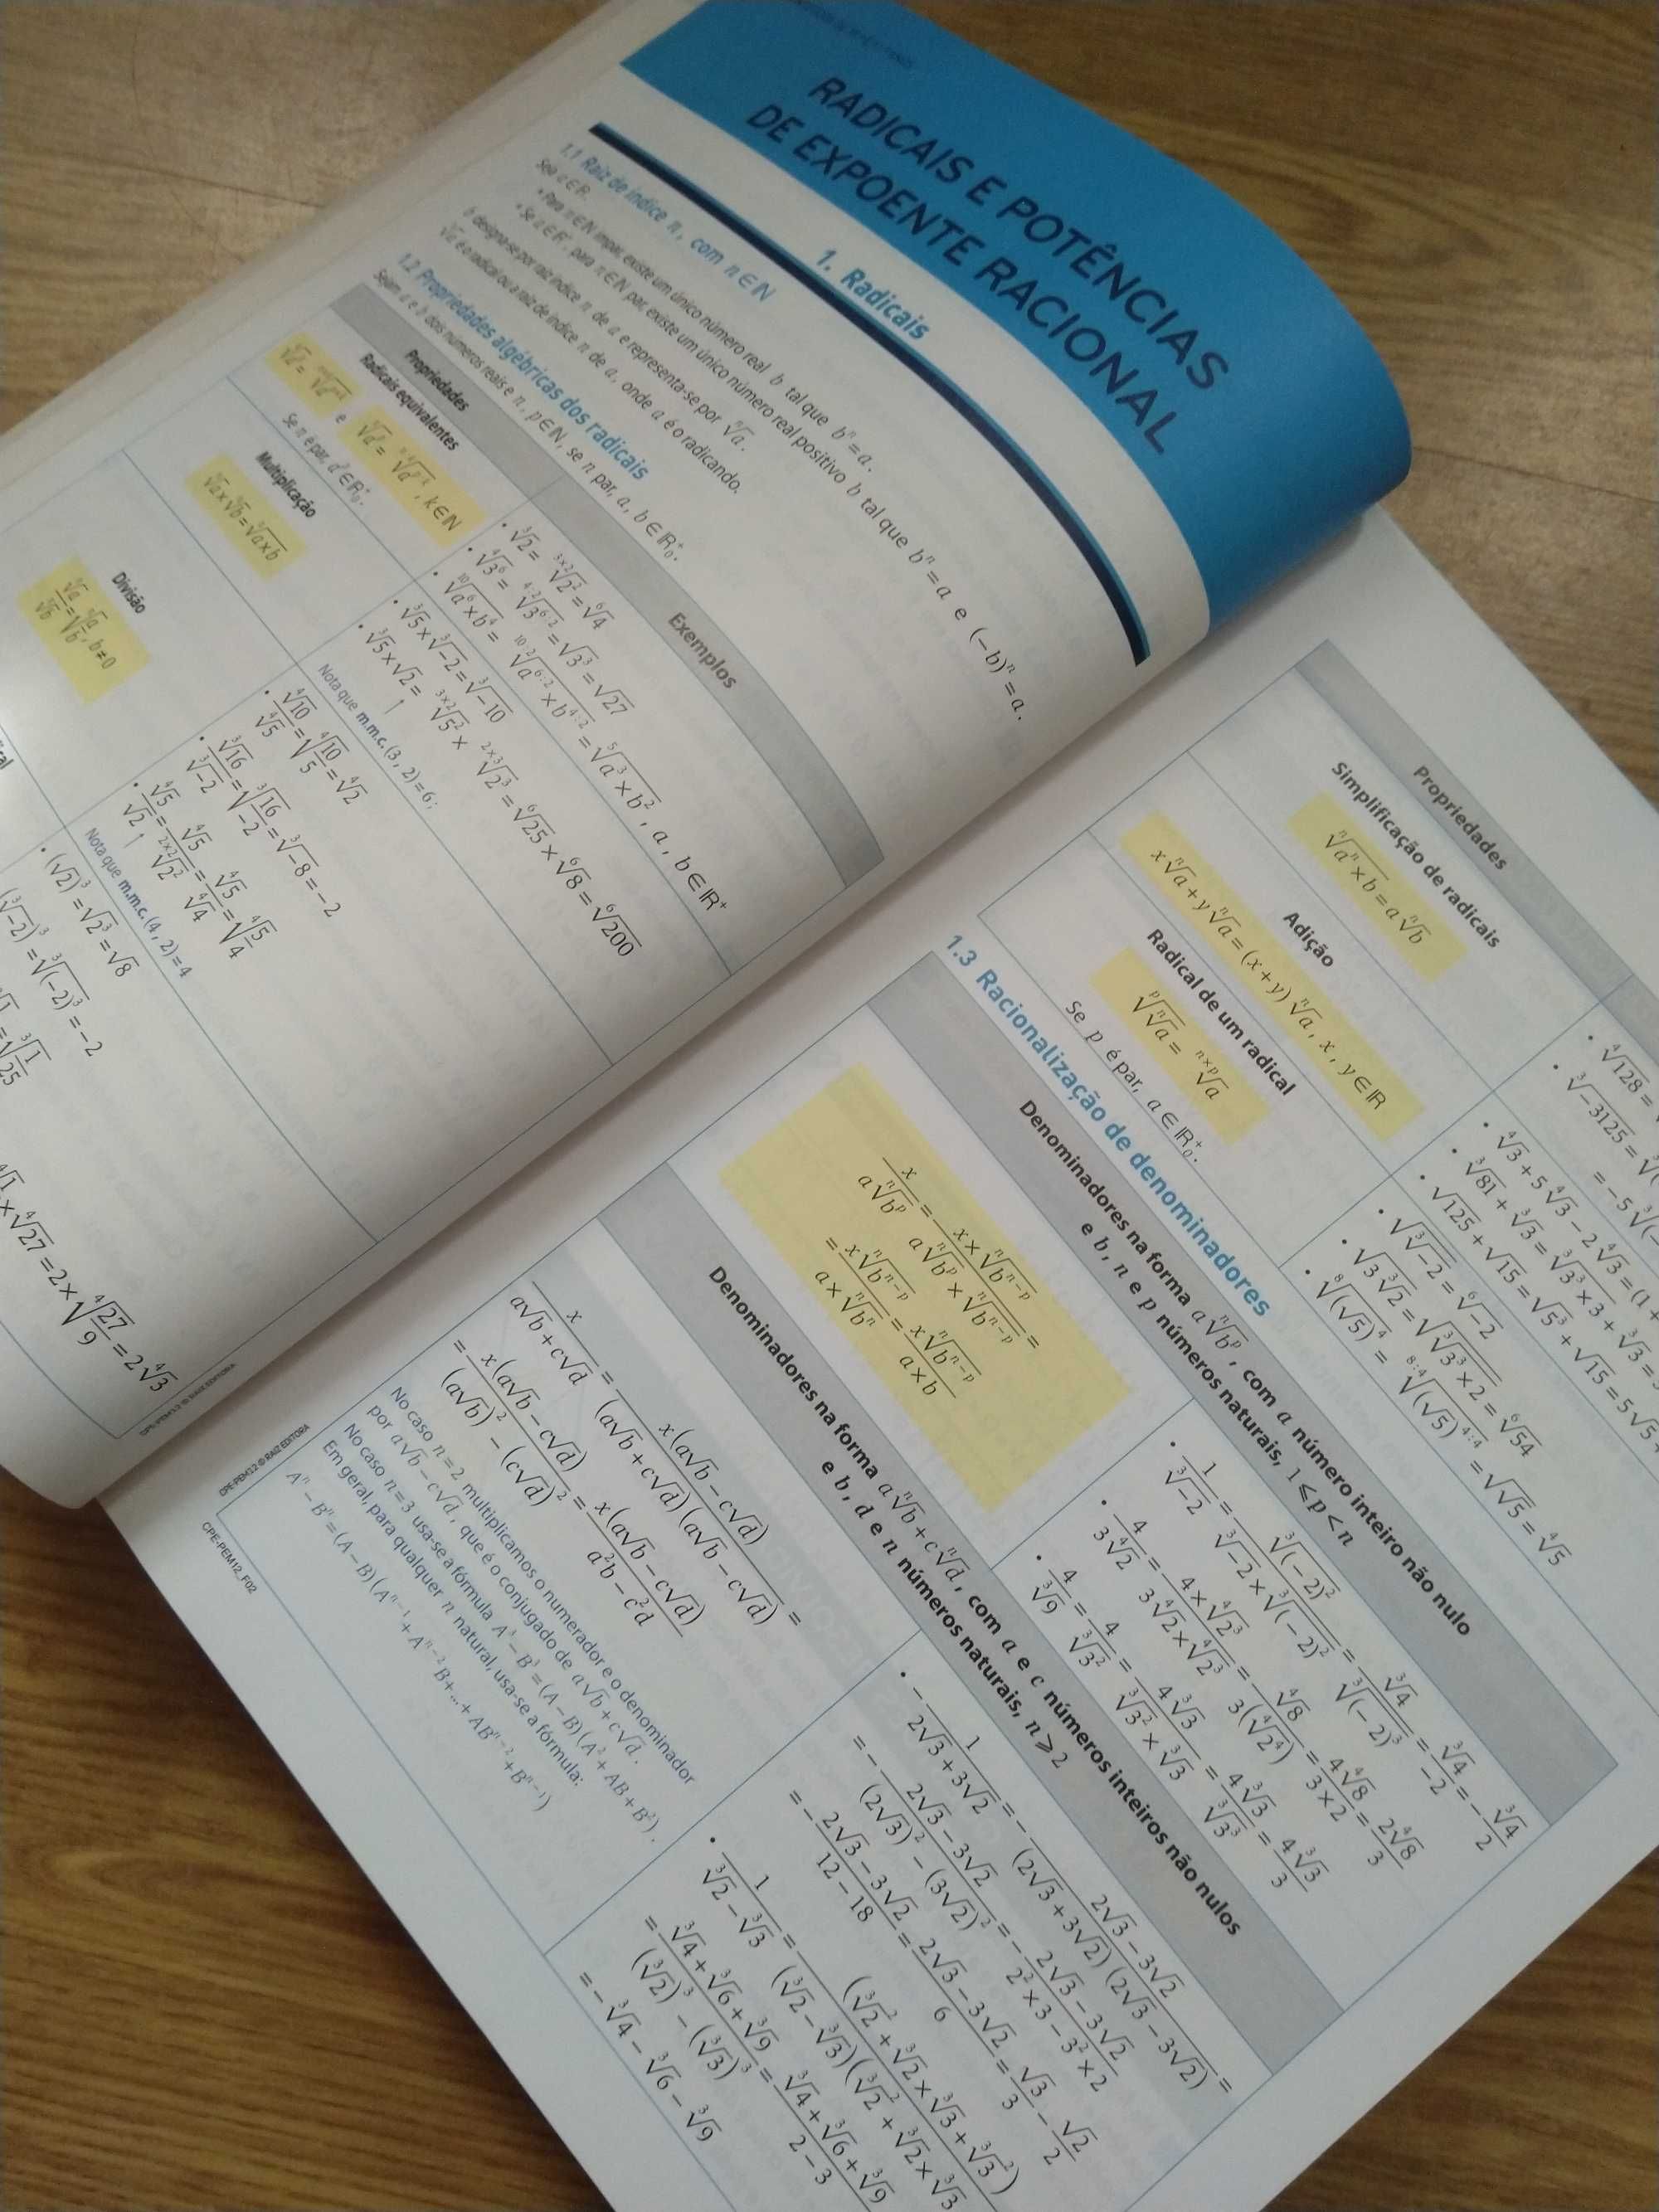 RADICAIS E POTÊNCIAS
DE EXPOENTE RACIONAL
1. Radicais
1.1 Raiz de índice n, com n ∈ ℕ
Seja a ∈ ℝ.
• Para n ∈ ℕ ímpar, existe um único número real b tal que bⁿ = a.
• Se a ∈ ℝ⁺, para n ∈ ℕ par, existe um único número real positivo b tal que bⁿ = a e (−b)ⁿ = a.
b designa-se por raiz índice n de a e representa-se por ⁿ√a.
ⁿ√a é o radical ou a raiz de índice n de a, onde a é o radicando.
1.2 Propriedades algébricas dos radicais
Sejam a e b dois números reais e n, p ∈ ℕ, se n par, a, b ∈ ℝ₀⁺.
Propriedades
Exemplos
Radicais equivalentes
e
, k ∈ ℕ
Se n é par,
• ³√2 = ³ˣ²√2² = ⁶√4
• ⁴√3⁶ = ⁴:²√3⁶:² = √3³ = √27
• ¹⁰√(a⁶ × b⁴) = ¹⁰:²√(a⁶:² × b⁴:²) = ⁵√(a³ × b²), a, b ∈ ℝ⁺
Multiplicação
ⁿ√a × ⁿ√b = ⁿ√(a × b)
• ³√5 × ³√−2 = ³√−10
• ³√5 × √2 = ³ˣ²√5² × ²ˣ³√2³ = ⁶√25 × ⁶√8 = ⁶√200
↑
Nota que m.m.c. (3, 2) = 6;
Divisão
ⁿ√a / ⁿ√b = ⁿ√(a/b), b ≠ 0
• ⁴√10 / ⁴√5 = ⁴√(10/5) = ⁴√2
• ³√16 / ³√−2 = ³√(16/−2) = ³√−8 = −2
• ⁴√5 / √2 = ⁴√5 / ²ˣ²√2² = ⁴√5 / ⁴√4 = ⁴√(5/4)
↑
Nota que m.m.c. (4, 2) = 4
• (√2)³ = √2³ = √8
(³√−2)³ = ³√(−2)³ = −2
× ⁴√27 = 2 × ⁴√(27/9) = 2 ⁴√3
CPE-PEM12 © RAIZ EDITORA
Propriedades
Simplificação de radicais
ⁿ√(aⁿ × b) = a ⁿ√b
• ⁴√128 =
• ³√−3125 =
= −5
Adição
x ⁿ√a + y ⁿ√a = (x + y) ⁿ√a, x, y ∈ ℝ
• ⁴√3 + 5 ⁴√3 − 2 ⁴√3 = (1 +
• ³√81 + ³√3 = ³√(3³ × 3) + ³√3 =
• √125 + √15 = √5³ + √15 = 5√5 +
Radical de um radical
ᵖ√(ⁿ√a) = ⁿˣᵖ√a
Se p é par, a ∈ ℝ₀⁺.
• √(³√−2) = ⁶√−2
• √(3 ³√2) = √(³√(3³ × 2)) = ⁶√54
• ⁸√(√5)⁴ = ⁸:⁴√(√5)⁴:⁴ = √√5 = ⁴√5
1.3 Racionalização de denominadores
Denominadores na forma a ⁿ√bᵖ, com a número inteiro não nulo
e b, n e p números naturais, 1 ⩽ p < n
x / (a ⁿ√bᵖ) = (x × ⁿ√bⁿ⁻ᵖ) / (a ⁿ√bᵖ × ⁿ√bⁿ⁻ᵖ) =
= (x ⁿ√bⁿ⁻ᵖ) / (a × ⁿ√bⁿ) = (x ⁿ√bⁿ⁻ᵖ) / (a × b)
• 1 / ³√−2 = ³√(−2)² / (³√−2 × ³√(−2)²) = ³√4 / ³√(−2)³ = ³√4 / −2 = − ³√4 / 2
• 4 / (3 ⁴√2) = (4 × ⁴√2³) / (3 ⁴√2 × ⁴√2³) = ⁴√8 / (3(⁴√2⁴)) = 4 ⁴√8 / (3 × 2) = 2 ⁴√8 / 3
• 4 / ³√9 = 4 / ³√3² = 4 ³√3 / (³√3² × ³√3) = 4 ³√3 / ³√3³ = 4 ³√3 / 3
Denominadores na forma a ⁿ√b + c ⁿ√d, com a e c números inteiros não nulos
e b, d e n números naturais, n ⩾ 2
x / (a√b + c√d) = x(a√b − c√d) / ((a√b + c√d)(a√b − c√d)) =
= x(a√b − c√d) / ((a√b)² − (c√d)²) = x(a√b − c√d) / (a²b − c²d)
No caso n = 2, multiplicamos o numerador e o denominador
por a√b − c√d, que é o conjugado de a√b + c√d.
No caso n = 3 usa-se a fórmula A³ − B³ = (A − B)(A² + AB + B²).
Em geral, para qualquer n natural, usa-se a fórmula:
Aⁿ − Bⁿ = (A − B)(Aⁿ⁻¹ + Aⁿ⁻²B + ... + ABⁿ⁻² + Bⁿ⁻¹)
• − 1 / (2√3 + 3√2) = − (2√3 − 3√2) / ((2√3 + 3√2)(2√3 − 3√2)) =
= − (2√3 − 3√2) / ((2√3)² − (3√2)²) = − (2√3 − 3√2) / (2² × 3 − 3² × 2)
= − (2√3 − 3√2) / (12 − 18) = (2√3 − 3√2) / 6 = √3/3 − √2/2
• 1 / (³√2 − ³√3) = (³√2² + ³√2 × ³√3 + ³√3²) / ((³√2 − ³√3)(³√2² + ³√2 × ³√3
= (³√4 + ³√6 + ³√9) / ((³√2)³ − (³√3)³) = (³√4 + ³√6 + ³√9) / (2 − 3)
= − ³√4 − ³√6 − ³√9
CPE-PEM12 © RAIZ EDITORA
CPE-PEM12_F02